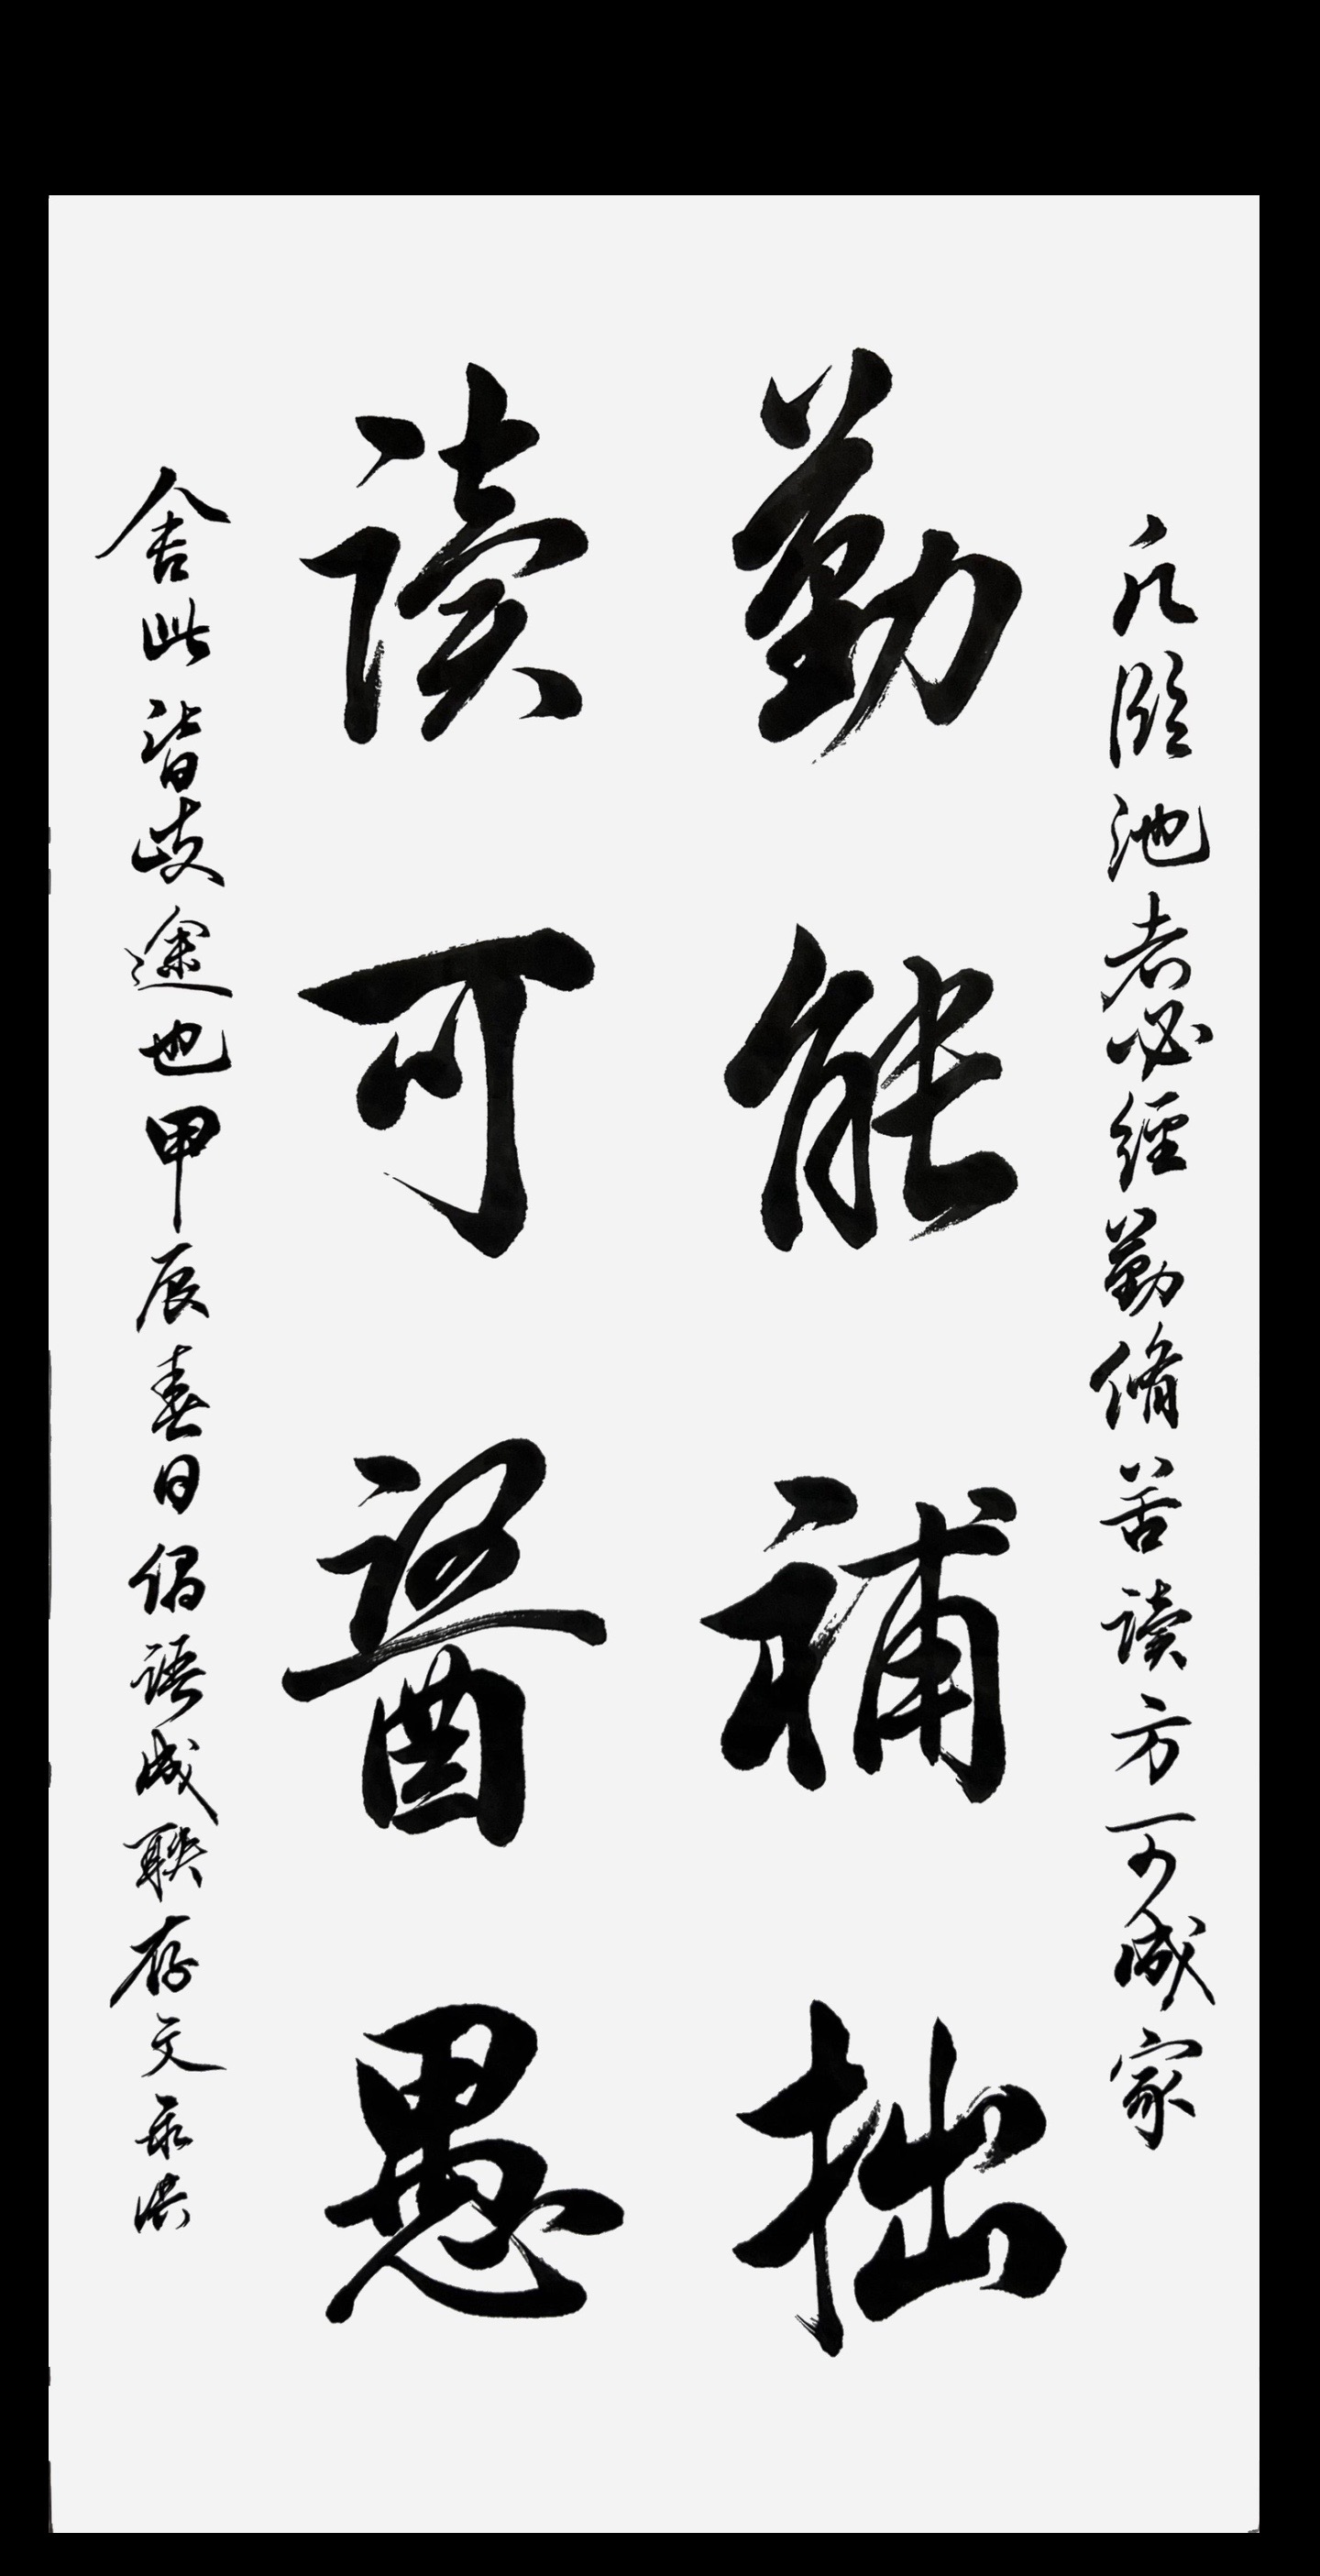 凡臨池者必經勤脩苦读方可成家
勤能補拙
读可醫愚
舍此皆歧途也甲辰春日偶语成聯存文永洪